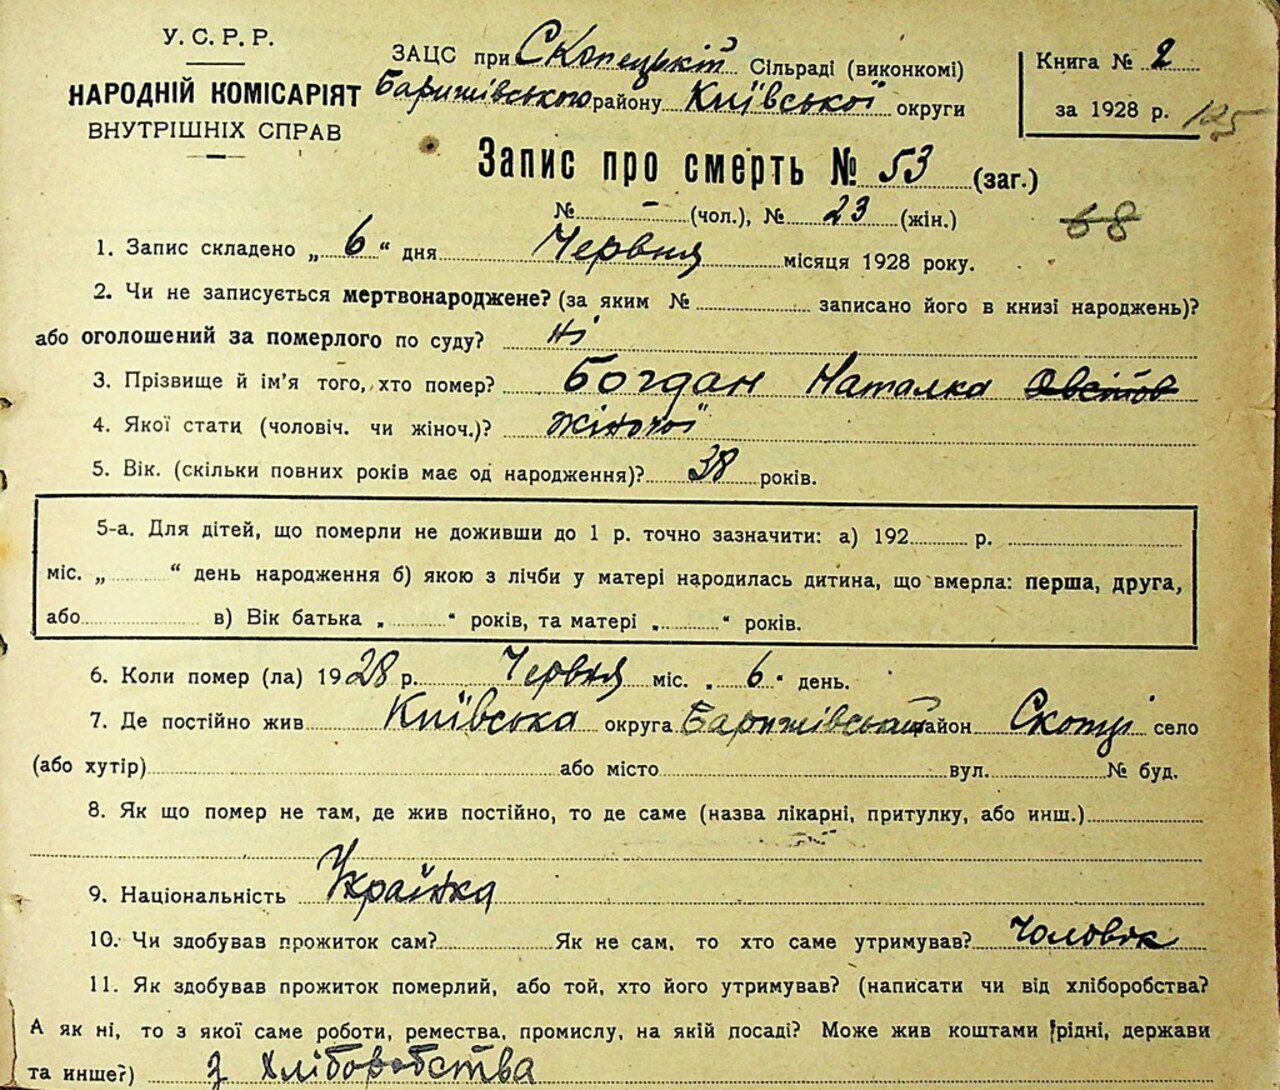 У. С. Р. Р.
НАРОДНІЙ КОМІСАРІЯТ
ВНУТРІШНІХ СПРАВ
ЗАЦС при Скопецькій Сільраді (виконкомі)
Баришівського району Київської округи
Книга № 2
за 1928 р. 125
Запис про смерть № 53 (заг.)
№ - (чол.), № 23 (жін.)
68
1. Запис складено „ 6 “ дня Червня місяця 1928 року.
2. Чи не записується мертвонароджене? (за яким № записано його в книзі народжень)?
або оголошений за померлого по суду? ні
3. Прізвище й ім'я того, хто помер? Богдан Наталка
4. Якої стати (чоловіч. чи жіноч.)? жіночої
5. Вік. (скільки повних років має од народження)? 38 років.
5-а. Для дітей, що померли не доживши до 1 р. точно зазначити: а) 192 р.
міс. „ “ день народження б) якою з лічби у матері народилась дитина, що вмерла: перша, друга,
або в) Вік батька „ “ років, та матері „ “ років.
6. Коли помер (ла) 1928 р. Червня міс. „ 6 “ день.
7. Де постійно жив Київська округа Баришівський район Скопці село
(або хутір) або місто вул. № буд.
8. Як що помер не там, де жив постійно, то де саме (назва лікарні, притулку, або инш.)
9. Національність Українка
10. Чи здобував прожиток сам? Як не сам, то хто саме утримував? Чоловік
11. Як здобував прожиток померлий, або той, хто його утримував? (написати чи від хліборобства?
А як ні, то з якої саме роботи, ремества, промислу, на якій посаді? Може жив коштами рідні, держави
та инше?) з Хліборобства